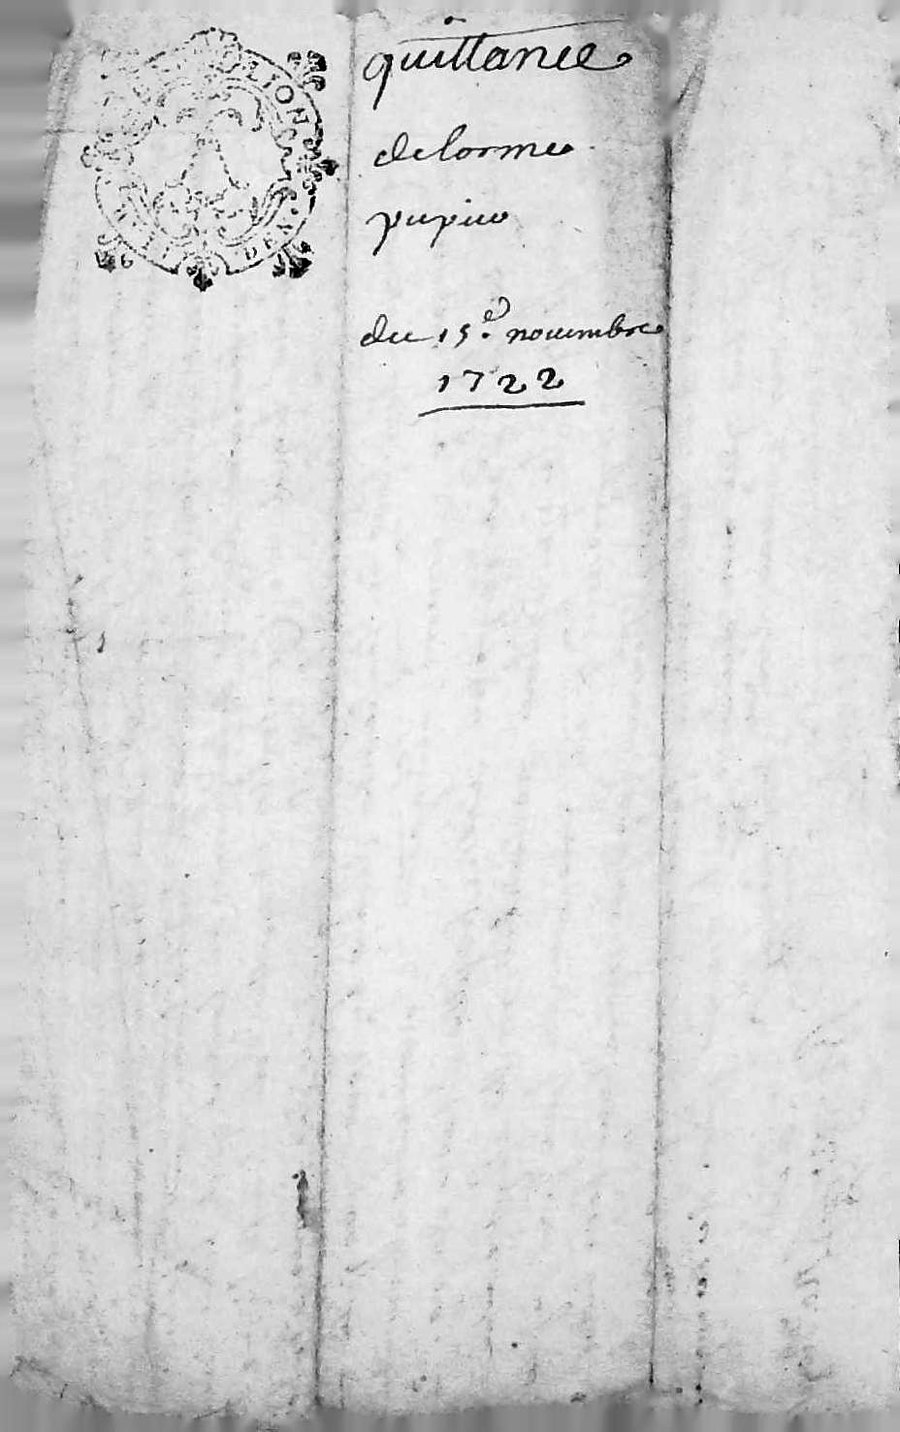 quittance
delorme
pupiu
du 15.e novembre
1722